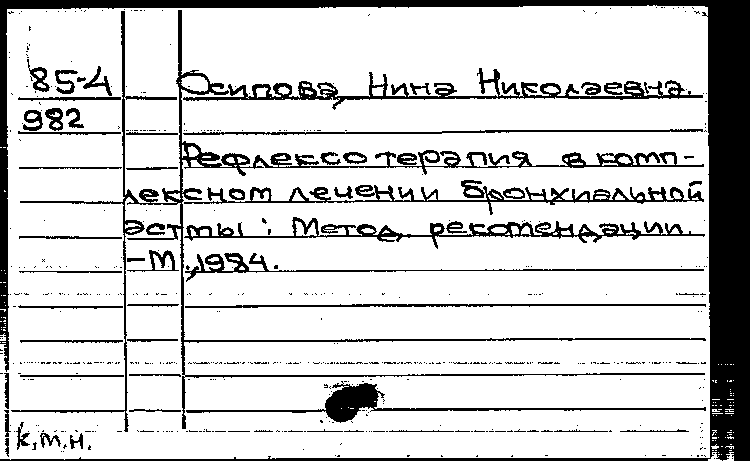 85-4 Осипова, Нина Николаевна.
982
Рефлексотерапия в комп-
лексном лечении бронхиальной
астмы : Метод. рекомендации.
- М., 1984.
к.м.н.